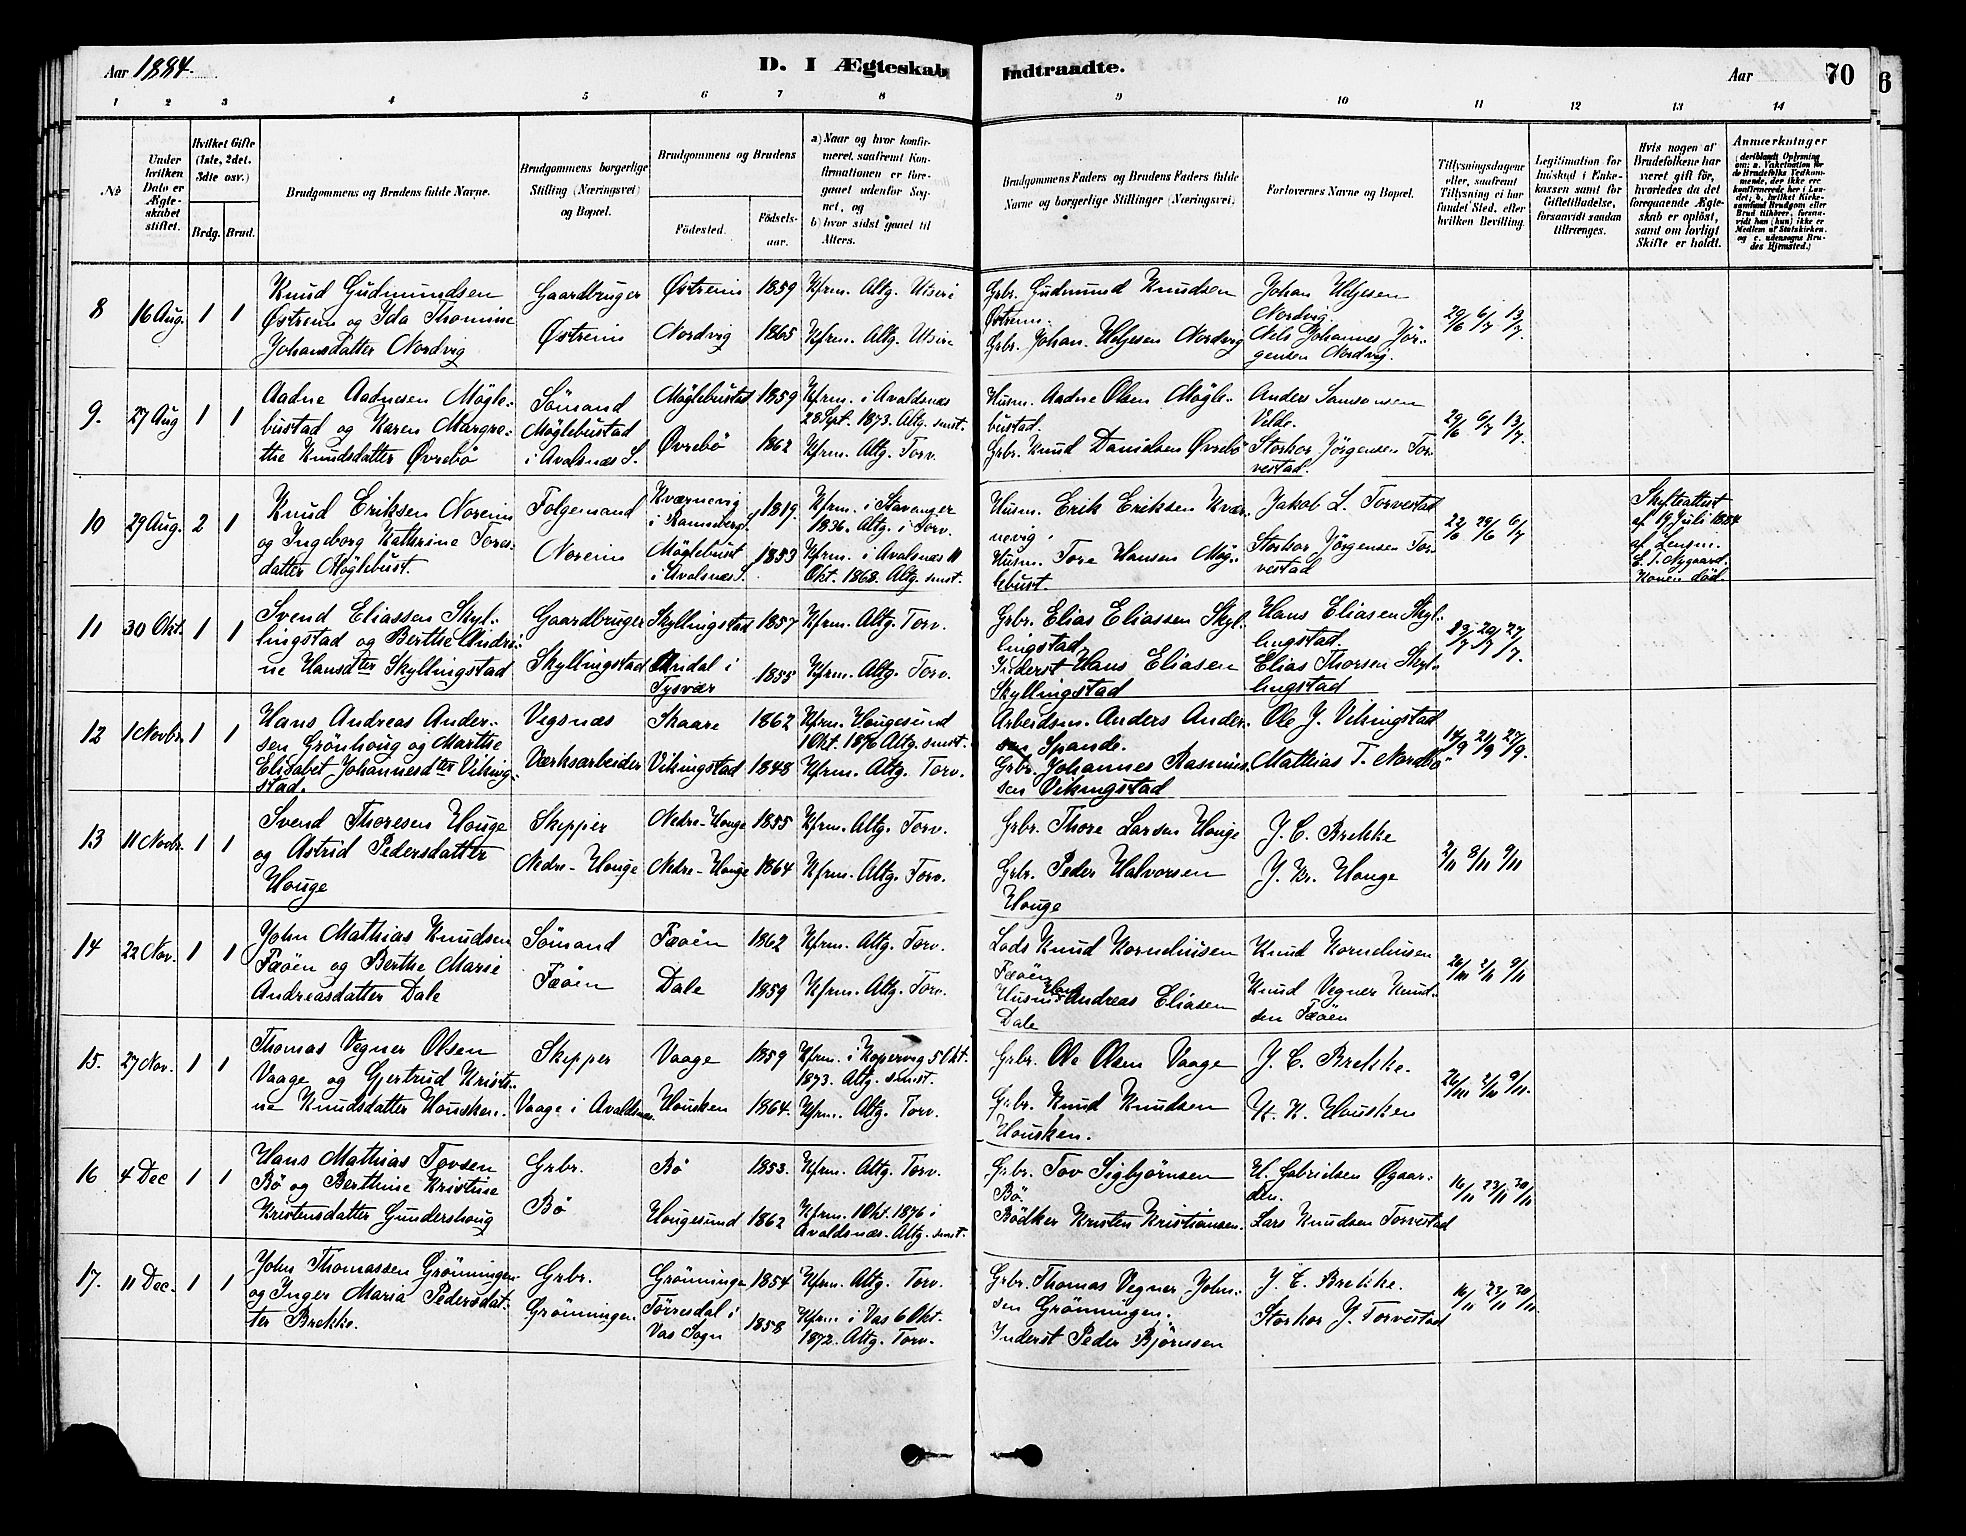 Aar 1884.
D. I Ægteskab Indtraadte.
Aar 70
6
1 2 3 4 5 6 7 8 9 10 11 12 13 14
No
Under hvilken Dato er Ægteskabet stiftet.
Hvilket Gifte (1ste, 2det. 3dte osv.)
Brdg. Brud.
Brudgommens og Brudens fulde Navne.
Brudgommens borgerlige Stilling (Næringsvei) og Bopæl.
Brudgommens og Brudens
Födested.
Födselsaar.
a) Naar og hvor konfirmeret, saafremt Konfirmationen er foregaaet udenfor Sognet, og
b) hvor sidst gaaet til Alters.
Brudgommens Faders og Brudens Faders fulde Navne og borgerlige Stillinger (Næringsvei)
Forlovernes Navne og Bopæl.
Tillysningsdagene eller, saafremt Tillysning ei har fundet Sted, efter hvilken Bevilling.
Legitimation for Indskud i Enkekassen samt for Giftetilladelse, forsaavidt saadan tiltrænges.
Hvis nogen af Brudefolkene har været gift för, hvorledes da det foregaaende Ægteskab er oplöst, samt om lovligt Skifte er holdt.
Anmærkninger
8 16 Aug. 1 1
Knud Gudmundsen
Østrem og Ida Thomine
Johansdatter Nordvig
Gaardbruger
Østrem
Østrem 1859 Kfrm. Altg. Utsire
Nordvig 1865 Kfrm. Altg. Utsire
Grbr. Gudmund Knudsen
Østrem.
Grbr. Johan Helgesen Nordvig
Johan Helgesen
Nordvig.
Nels Johannes Jör-
gensen Nordvig.
29/6 6/7 13/7
9. 27 Aug 1 1
Aadne Aadnesen Mögle-
bustad og Karen Margre-
the Knudsdatter Øvrebö
Sömand
Möglebustad
i Avalsnæs S.
Möglebustad 1859 Kfrm. i Avaldsnæs
28 Sept. 1873. Altg. smst.
Øvrebö 1862 Kfrm. Altg. Torv.
Husm. Aadne Olsen Mögle-
bustad.
Grbr. Knud Danielsen Øvrebö
Anders Samsonsen
Velde.
Storkor Jörgensen Tor-
vestad.
29/6 6/7 13/7
10 29 Aug. 2 1
Knud Eriksen Norem
og Ingeborg Kathrine Tores-
datter Möglebust.
Folgemand
Norem
Kværnevig
i Ramsberg 1819. Kfrm. i Stavanger
1836. Altg. i Torv.
Möglebust
i Avalsnæs S. 1853 Kfrm. i Avalsnæs 11
Okt. 1868. Altg. smst.
Husm. Erik Eriksen Kvær-
nevig.
Husm. Tore Hansen Mög-
lebust.
Jakob L. Torvestad
Storkor Jörgensen Tor-
vestad
22/6 29/6 6/7
Skifteattest
af 19 Juli 1884
af Lensm.
Nygaard.
Konen död.
11 30 Okt. 1 1
Svend Eliassen Skyl-
lingstad og Berthe Andri-
ne Hansdter Skyllingstad
Gaardbruger
Skyllingstad
Skyllingstad 1857 Kfrm. Altg. Torv.
i
Tysvær 1855 Kfrm. Altg. Torv.
Grbr. Elias Eliassen Skyl-
lingstad
Inderst Hans Eliasen
Skyllingstad
Hans Eliasen Skyl-
lingstad
Elias Thorsen Skyl-
lingstad
13/7 20/7 27/7.
12 1 Novbr. 1 1
Hans Andreas Ander-
sen Grönhoug og Marthe
Elisabet Johannesdter Viking-
stad.
Vigsnæs
Værksarbeider
Skaare 1862 Kfrm. Hougesund
1 Okt. 1876 Altg. smst.
Vikingstad 1848 Kfrm. Altg. Torv.
Arbeidsm. Anders Ander-
sen Spande.
Grbr. Johannes Rasmus-
sen Vikingstad
Ole J. Vikingstad
Mathias T. Nordbö
14/9 21/9 27/9.
13 11 Novbr. 1 1
Svend Thoresen Houge
og Astrid Pedersdatter
Houge
Skipper
Nedre-Houge
Nedre-Houge 1855 Kfrm. Altg. Torv.
Nedre-Houge 1864 Kfrm. Altg. Torv.
Grbr. Thore Larsen Houge
Grbr. Peder Halvorsen
Houge
J. C. Brekke
J. Kr. Houge
2/11 8/11 9/11
14 22 Nov. 1 1
John Mathias Knudsen
Fæöen og Berthe Marie
Andreasdatter Dale
Sömand
Fæöen
Fæöen 1862 Kfrm. Altg. Torv.
Dale 1859 Kfrm. Altg. Torv.
Lods Knud Korneliussen
Fæöen
Husm. Hans Andreas Eliasen
Dale
Knud Korneliusen
Knud Vegner Knud-
sen Fæöen
26/10 2/11 9/11
15. 27 Nov. 1 1
Thomas Vegner Olsen
Vaage og Gjertrud Kristi-
ne Knudsdatter Housken.
Skipper
Vaage i Avaldsnæs
Vaage 1859 Kfrm. i Kopervig 5 Okt.
1873. Altg. smst.
Housken 1864. Kfrm. Altg. Torv.
Grbr. Ole Olsen Vaage
Grbr. Knud Knudsen
Housken.
J. C. Brekke.
K. K. Housken
26/10 2/11 9/11.
16 4 Dec 1 1
Hans Mathias Tovsen
Bö og Berthine Kristine
Kristensdatter Gundershoug
Grbr.
Bö
Bö 1853. Kfrm. Altg. Torv.
Hougesund 1862 Kfrm. 1 Okt. 1876 i
Avaldsnæs. Altg. smst.
Grbr. Tov Sigbjörnsen
Bö.
Bödker Kristen Kristiansen.
H. Gabrielsen Øgaar-
den.
Lars Knudsen Torvestad
16/11 23/11 30/11
17. 11 Dec. 1 1
John Thomassen Grönningen
og Inger Maria Pedersdat-
ter Brekke.
Grbr.
Grönningen.
Grönningen 1854 Kfrm. Altg. Torv.
Törresdal i
Vas Sogn 1858 Kfrm. i Vas 6 Okt.
1872. Altg. Torv.
Grbr. Thomas Vegner John-
sen Grönningen.
Inderst Peder Björnsen
J. C. Brekke.
Storkor J. Torvestad
16/11 23/11 30/11